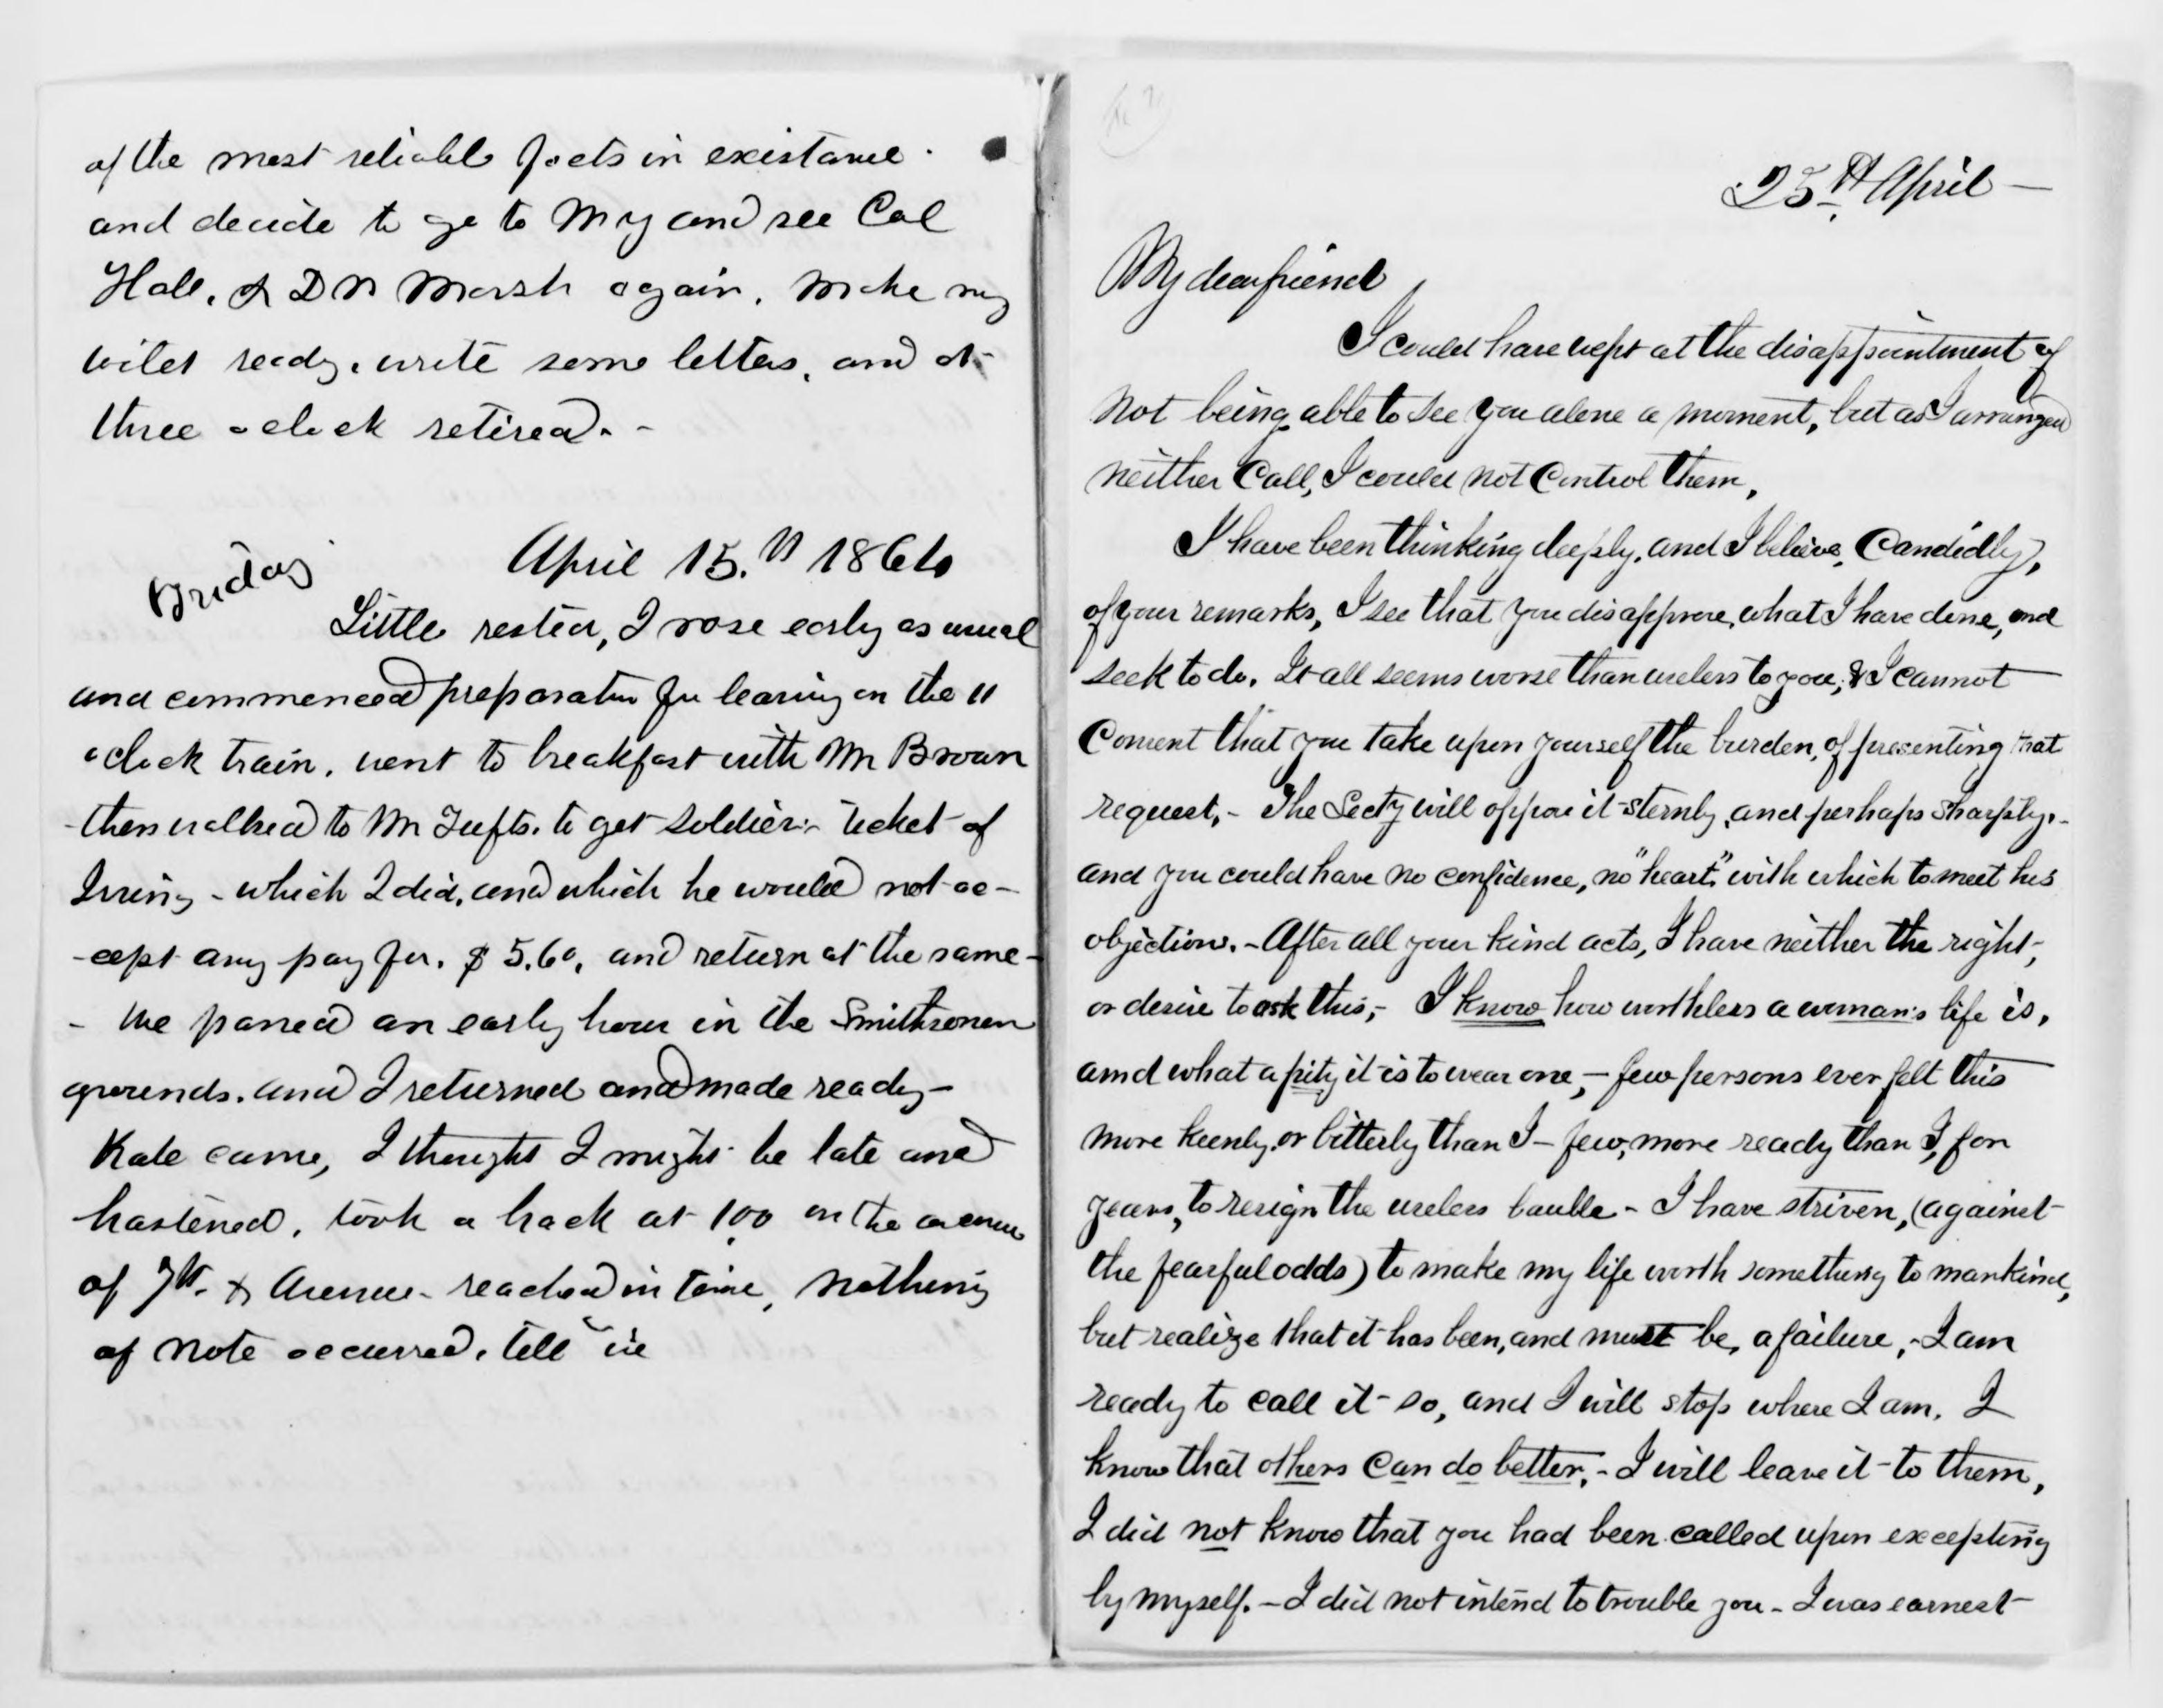 of the most reliable facts in existance.
and decide to go to N Y and see Col
Hall, & Dr Marsh again. Make my
toilet ready. write some letters, and at
three oclock retired. -
April 15.th 1864
Friday
Little rested, I rose early as usual
and commenced preparation for leaving on the 11
oclock train. went to breakfast with Mr Brown
then walked to Mr Tufts. to get soldiers ticket of
Irving - which I did, and which he would not ac-
-cept any pay for. $ 5.60, and return at the same -
- We passed an early hour in the Smithsonen
grounds. and I returned and made ready -
Kate came, I thought I might be late and
hastened, took a hack at 1.00 on the avenue
of 7th & Avenue - reached in time, nothing
of note occurred, till in
25th April —
My dear friend,
I could have wept at the disappointment of
not being able to see you alone a moment, but as I arranged
neither Call, I could not Control them,
I have been thinking deeply, and I believe, Candidly,
of your remarks, I see that you disapprove, what I have done, and
seek to do. It all seems worse than useless to you, & I cannot
Consent that you take upon yourself the burden, of presenting that
request, - The Secty will oppose it sternly, and perhaps sharply, -
and you could have no confidence, no "heart" with which to meet his
objections. - After all your kind acts, I have neither the right,
or desire to ask this, - I know how worthless a woman's life is,
amd what a pity it is to wear one, - few persons ever felt this
more keenly, or bitterly than I - few, more ready than I, for
years, to resign the useless bauble - I have striven, (against
the fearful odds) to make my life worth something to mankind,
but realize that it has been, and must be, a failure, - I am
ready to call it so, and I will stop where I am. I
know that others can do better, - I will leave it to them,
I did not know that you had been called upon excepting
by myself. - I did not intend to trouble you - I was earnest